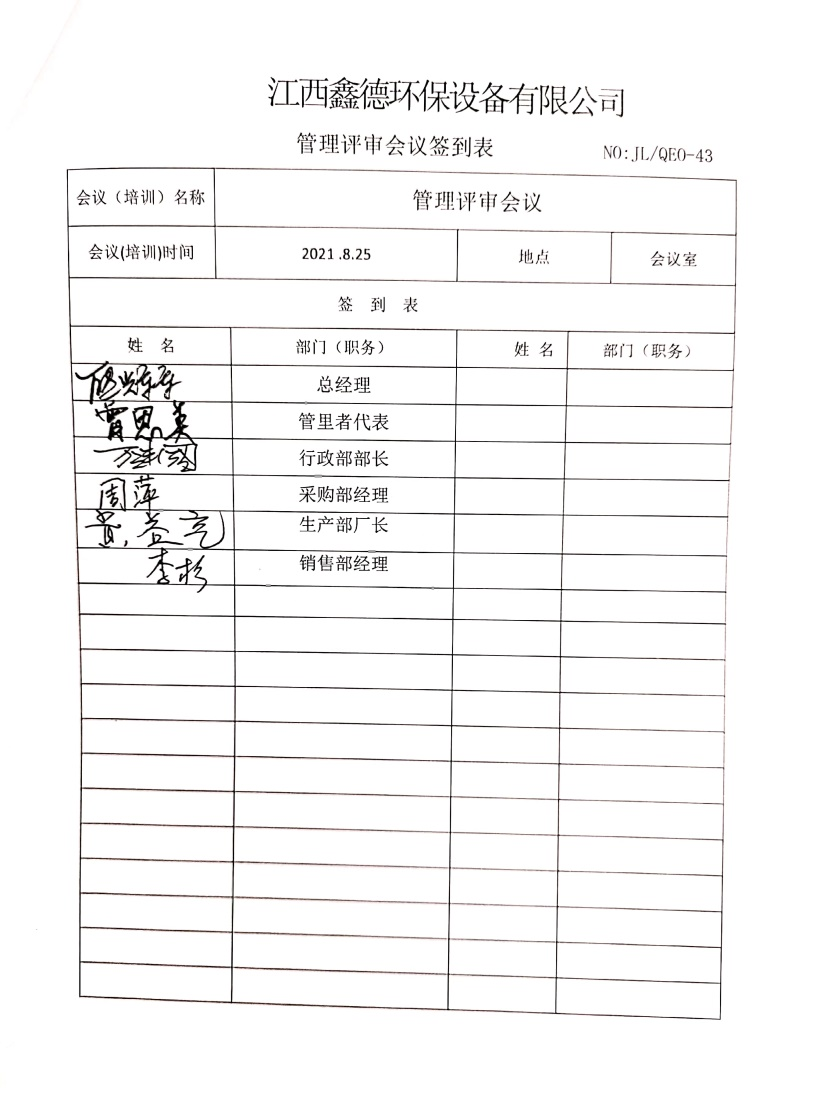 江西鑫德环保设备有限公司
管理评审会议签到表 NO:JL/QEO-43
会议（培训）名称 管理评审会议
会议(培训)时间 2021 .8.25 地点 会议室
签 到 表
姓 名 部门（职务） 姓 名 部门（职务）
总经理
曾思英 管里者代表
行政部部长
周萍 采购部经理
生产部厂长
李杉 销售部经理